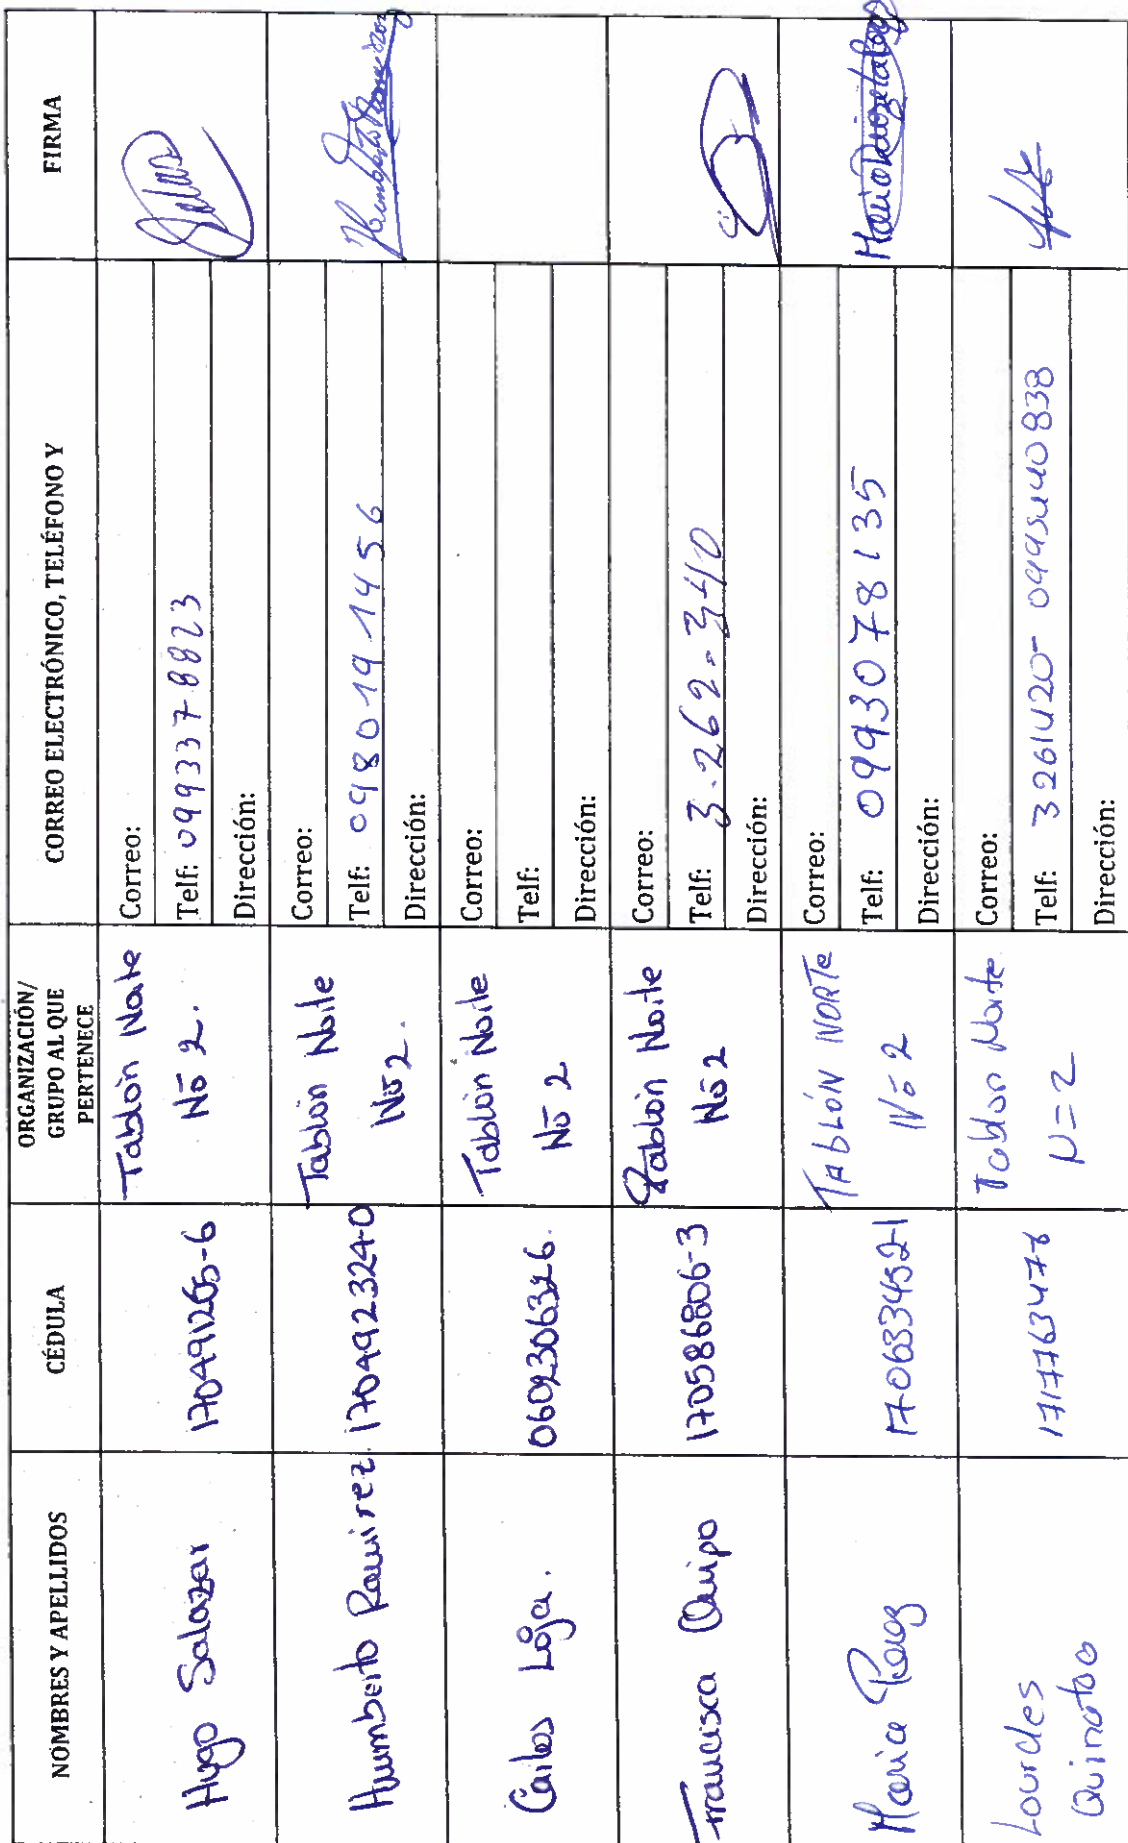 NOMBRES Y APELLIDOS
CÉDULA
ORGANIZACIÓN/
GRUPO AL QUE
PERTENECE
CORREO ELECTRÓNICO, TELÉFONO Y
FIRMA
Hugo Salazar
170491265-6
Tablón Norte
Nō 2.
Correo:
Telf: 0993378823
Dirección:
Humberto Ramirez
170492324-0
Tablón Norte
Nō 2.
Correo:
Telf: 0980191456
Dirección:
Humberto Ramirez
Carlos Loja.
0602306326.
Tablón Norte
Nō 2
Correo:
Telf:
Dirección:
Francisca Quipo
170586806-3
Tablón Norte
Nō 2
Correo:
Telf: 3.262-340
Dirección:
Maria
170633452-1
TABLÓN NORTE
Nō 2
Correo:
Telf: 0993078135
Dirección:
Lourdes
Quinatoo
Tablon Norte
N=2
Correo:
Telf: 3261420- 0995440838
Dirección: